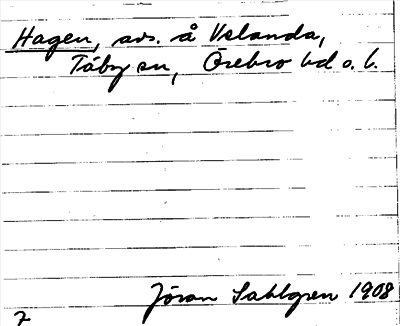 Hagen, avs. å Velanda,
Täby sn, Örebro hd o. l.
Jöran Sahlgren 1908
7